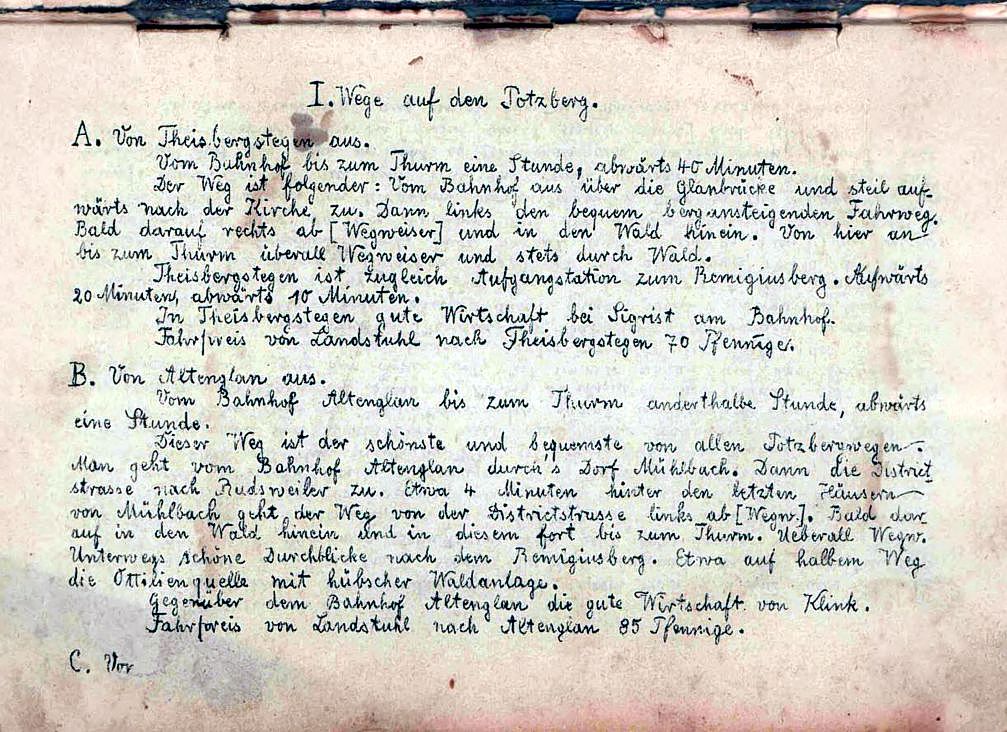 I. Wege auf den Potzberg.
A. Von Theisbergstegen aus.
Vom Bahnhof bis zum Thurm eine Stunde, abwärts 40 Minuten.
Der Weg ist folgender: Vom Bahnhof aus über die Glanbrücke und steil auf-
wärts nach der Kirche zu. Dann links den bequem bergansteigenden Fahrweg.
Bald darauf rechts ab [Wegweiser] und in den Wald hinein. Von hier an
bis zum Thurm überall Wegweiser und stets durch Wald.
Theisbergstegen ist zugleich Aufgangstation zum Remigiusberg. Aufwärts
20 Minuten, abwärts 10 Minuten.
In Theisbergstegen gute Wirtschaft bei Sigrist am Bahnhof.
Fahrpreis von Landstuhl nach Theisbergstegen 70 Pfennige.
B. Von Altenglan aus.
Vom Bahnhof Altenglan bis zum Thurm anderthalbe Stunde, abwärts
eine Stunde.
Dieser Weg ist der schönste und bequemste von allen Potzbergwegen.
Man geht vom Bahnhof Altenglan durch's Dorf Mühlbach. Dann die District
strasse nach Rudsweiler zu. Etwa 4 Minuten hinter den letzten Häusern
von Mühlbach geht der Weg von der Districtstrasse links ab [Wegw.]. Bald dar
auf in den Wald hinein und in diesem fort bis zum Thurm. Ueberall Wegw.
Unterwegs schöne Durchblicke nach dem Remigiusberg. Etwa auf halbem Weg
die Ottilienquelle mit hübscher Waldanlage.
Gegenüber dem Bahnhof Altenglan die gute Wirtschaft von Klink.
Fahrpreis von Landstuhl nach Altenglan 85 Pfennige.
C. Vor